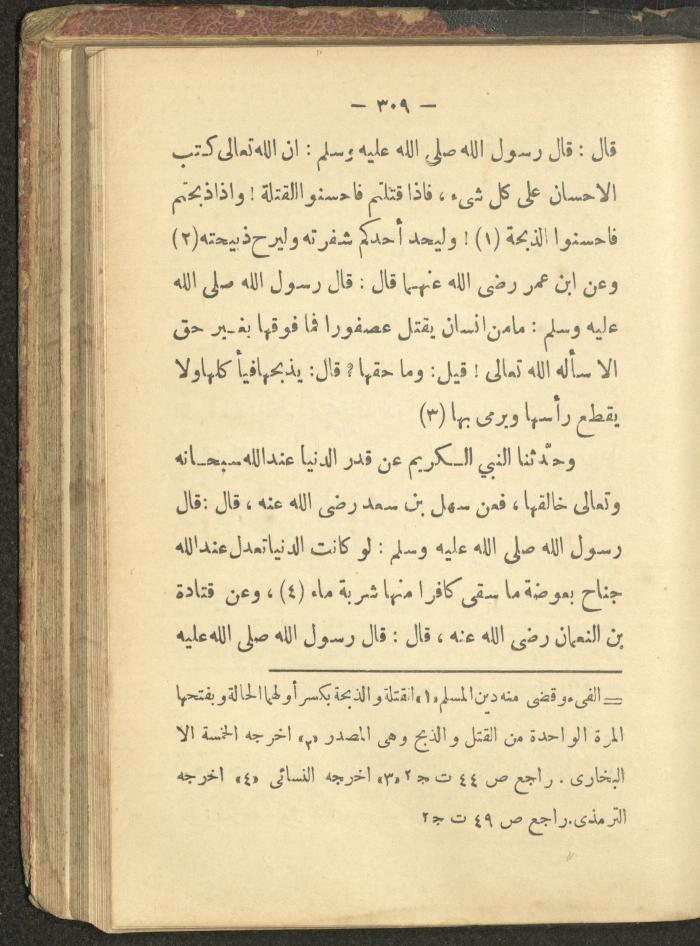 — ٣٠٩ —
قال : قال رسول الله صلى الله عليه وسلم : ان الله تعالى كتب
الاحسان على كل شىء ، فاذا قتلتم فاحسنوا القتلة ! واذا ذبحتم
فاحسنوا الذبحة (١) ! وليحد أحدكم شفرته وليرح ذبيحته (٢)
وعن ابن عمر رضى الله عنهما قال : قال رسول الله صلى الله
عليه وسلم : مامن انسان يقتل عصفورا فما فوقها بغير حق
الا سأله الله تعالى ! قيل : وما حقها ? قال : يذبحها فيأكلها ولا
يقطع رأسها ويرمى بها (٣)
وحدّثنا النبي الكريم عن قدر الدنيا عند الله سبحانه
وتعالى خالقها ، فعن سهل بن سعد رضى الله عنه ، قال : قال
رسول الله صلى الله عليه وسلم : لو كانت الدنيا تعدل عند الله
جناح بعوضة ما سقى كافرا منها شربة ماء (٤) ، وعن قتادة
بن النعمان رضى الله عنه ، قال : قال رسول الله صلى الله عليه
= الفىء وقضى منه دين المسلم «١» القتلة والذبحة بكسر أولهما الحالة وبفتحها
المرة الواحدة من القتل والذبح وهى المصدر «٢» اخرجه الخمسة الا
البخارى . راجع ص ٤٤ ت ج ٢ «٣» اخرجه النسائى «٤» اخرجه
الترمذى. راجع ص ٤٩ ت ج ٢